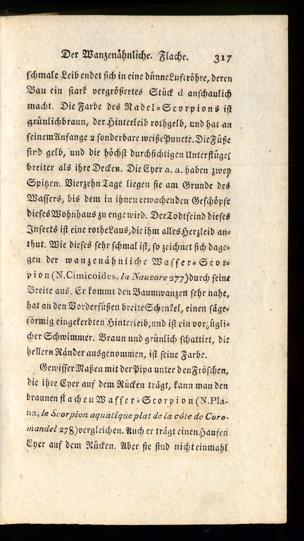 Der Wanzenähnliche. Flache. 317
schmale Leib endet sich in eine dünne Luftröhre, deren
Bau ein stark vergrößertes Stück d anschaulich
macht. Die Farbe des Nadel-Scorpions ist
grünlichbraun, der Hinterleib rothgelb, und hat an
seinem Anfange 2 sonderbare weiße Puncte. Die Füße
sind gelb, und die höchst durchsichtigen Unterflügel
breiter als ihre Decken. Die Eyer a. a. haben zwey
Spitzen. Vierzehn Tage liegen sie am Grunde des
Wassers, bis dem in ihnen erwachenden Geschöpfe
dieses Wohnhaus zu enge wird. Der Todtfeind dieses
Insects ist eine rothe Laus, die ihm alles Herzleid an-
thut. Wie dieses sehr schmal ist, so zeichnet sich dage-
gen der wanzenähnliche Wasser-Scor-
pion (N. Cimicoides, la Naucore 277) durch seine
Breite aus. Er kommt den Baumwanzen sehr nahe,
hat an den Vorderfüßen breite Schenkel, einen säge-
förmig eingekerbten Hinterleib, und ist ein vorzügli-
cher Schwimmer. Braun und grünlich schattirt, die
hellern Ränder ausgenommen, ist seine Farbe.
Gewisser Maßen mit der Pipa unter den Fröschen,
die ihre Eyer auf dem Rücken trägt, kann man den
braunen flachen Wasser-Scorpion (N. Pla-
na, le Scorpion aquatique plat de la côte de Coro-
mandel 278) vergleichen. Auch er trägt einen Haufen
Eyer auf dem Rücken. Aber sie sind nicht einmahl